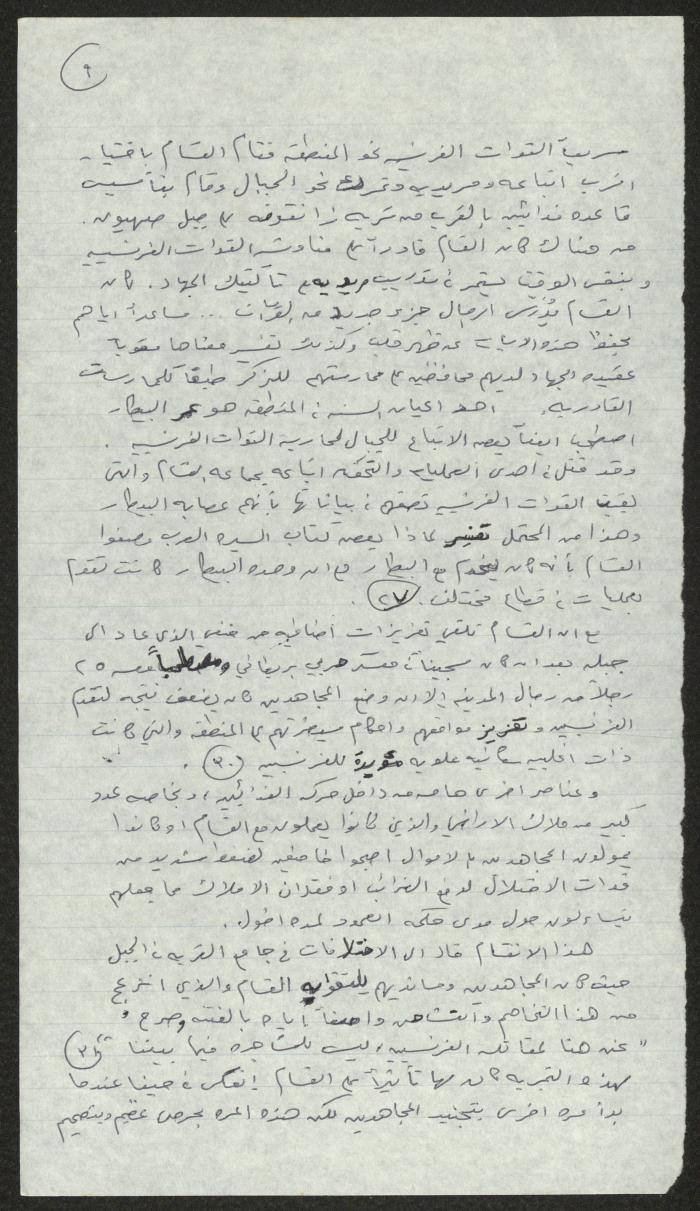 ٩
سريعاً القوات الفرنسيه نحو المنطقه فقام القسام باختيار
اقرب اتباعه ومريديه وتحرك نحو الجبال وقام بتأسيس
قاعده فدائيه بالقرب من قريه زنقوفه على جبل صهيون.
من هناك كان القسام قادراً على مناوشة القوات الفرنسيه
وبنفس الوقت يستمر في تدريب مريديه على تاكتيك الجهاد. كان
القسام يُدرّس الرجال جزء جديد من القرآن ... مساعداً اياهم
بحفظ هذه الايات عن ظهر قلب وكذلك تفسير معناها مقوياً
عقيده الجهاد لديهم محافظين على ممارستهم للذكر طبقاً للممارسات
القادريه. احد اعيان السنه في المنطقه هو عمر البيطار
اصطحب ايضاً بعض الاتباع للجبال لمحاربة القوات الفرنسيه.
وقد قتل في احدى العمليات والتحق اتباعه بجماعه القسام والتي
بقيت القوات الفرنسيه تصفهم في بياناتها بأنهم عصابه البيطار
وهذا من المحتمل تفسير لماذا بعض كتاب السيره العرب وصفوا
القسام بأنه كان يخدم مع البيطار مع ان وحده البيطار كانت تقوم
بعمليات في قطاع مختلف. (٢٧)
مع ان القسام تلقى تعزيزات اضافيه من حنفي الذي عاد الى
جبله بعد ان كان سجيناً في معسكر حربي بريطاني ومصطحباً معه ٢٥
رجلاً من رجال المدينه إلا ان وضع المجاهدين كان يضعف نتيجه لتقدم
الفرنسيين وتعزيز مواقعهم واحكام سيطرتهم على المنطقه والتي كانت
ذات اغلبيه سكانيه علويه مؤيدة للفرنسيين (٣٠).
وعناصر اخرى هامه من داخل حركه الفدائيين، وبخاصه عدد
كبير من ملاك الاراضي والذين كانوا يعملون مع القسام او كانوا
يمولون المجاهدين بالاموال اصبحوا خاضعين لضغط شديد من
قوات الاحتلال لدفع الضرائب او فقدان الاملاك مما جعلهم
يتساءلون حول مدى حكمه الصمود لمده اطول.
هذا الانقسام قاد الى الاختلافات في جامع القريه في الجبل
حيث كان المجاهدين ومسانديهم يلتقوا به القسام والذي انزعج
من هذا التخاصم والتشاحن واصفاً اياه بالفتنه وصرح
"نحن هنا لمقاتله الفرنسيين، ليس للمشاجره فيما بيننا" (٣١)
لهذه التجربه كان لها تأثيراً على القسام إنعكس في حيفا عندما
بدأ مره اخرى بتجنيد المجاهدين لكن هذه المره بحرص عظيم وبتصميم